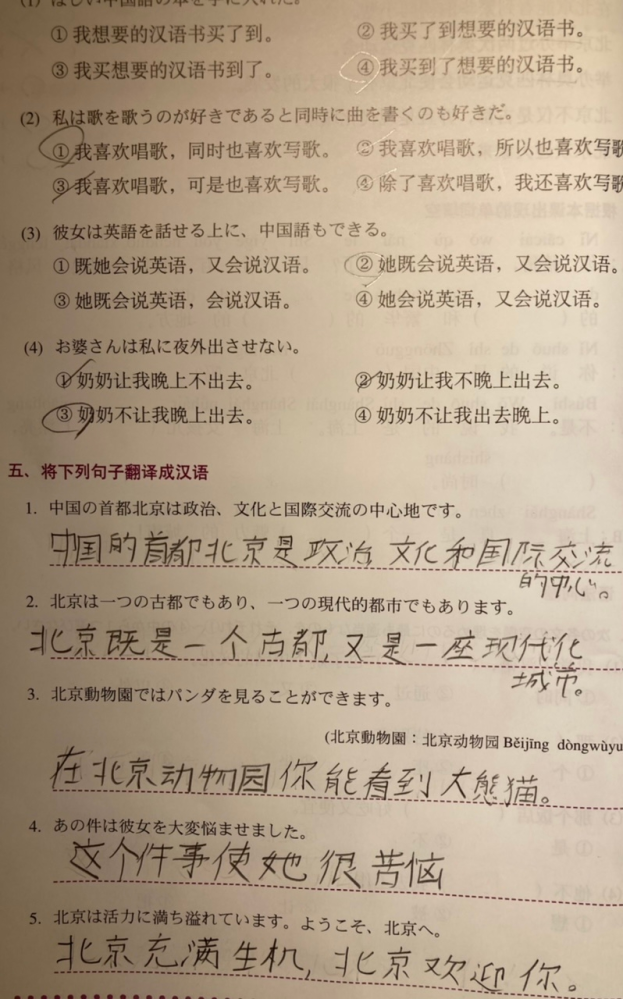 (1) ほしい中国語の本を手に入れた。
① 我想要的汉语书买了到。 ② 我买了到想要的汉语书。
③ 我买想要的汉语书到了。 ④ 我买到了想要的汉语书。
(2) 私は歌を歌うのが好きであると同時に曲を書くのも好きだ。
① 我喜欢唱歌，同时也喜欢写歌。 ② 我喜欢唱歌，所以也喜欢写歌
③ 我喜欢唱歌，可是也喜欢写歌。 ④ 除了喜欢唱歌，我还喜欢写歌
(3) 彼女は英語を話せる上に、中国語もできる。
① 既她会说英语，又会说汉语。 ② 她既会说英语，又会说汉语。
③ 她既会说英语，会说汉语。 ④ 她会说英语，又会说汉语。
(4) お婆さんは私に夜外出させない。
① 奶奶让我晚上不出去。 ② 奶奶让我不晚上出去。
③ 奶奶不让我晚上出去。 ④ 奶奶不让我出去晚上。
五、将下列句子翻译成汉语
1. 中国の首都北京は政治、文化と国際交流の中心地です。
中国的首都北京是政治 文化和国际交流
的中心。
2. 北京は一つの古都でもあり、一つの現代的都市でもあります。
北京既是一个古都,又是一座现代化
城市。
3. 北京動物園ではパンダを見ることができます。
(北京動物園：北京动物园 Běijīng dòngwùyu
在北京动物园你能看到大熊猫。
4. あの件は彼女を大変悩ませました。
这个件事使她很苦恼
5. 北京は活力に満ち溢れています。ようこそ、北京へ。
北京充满生机, 北京欢迎你。